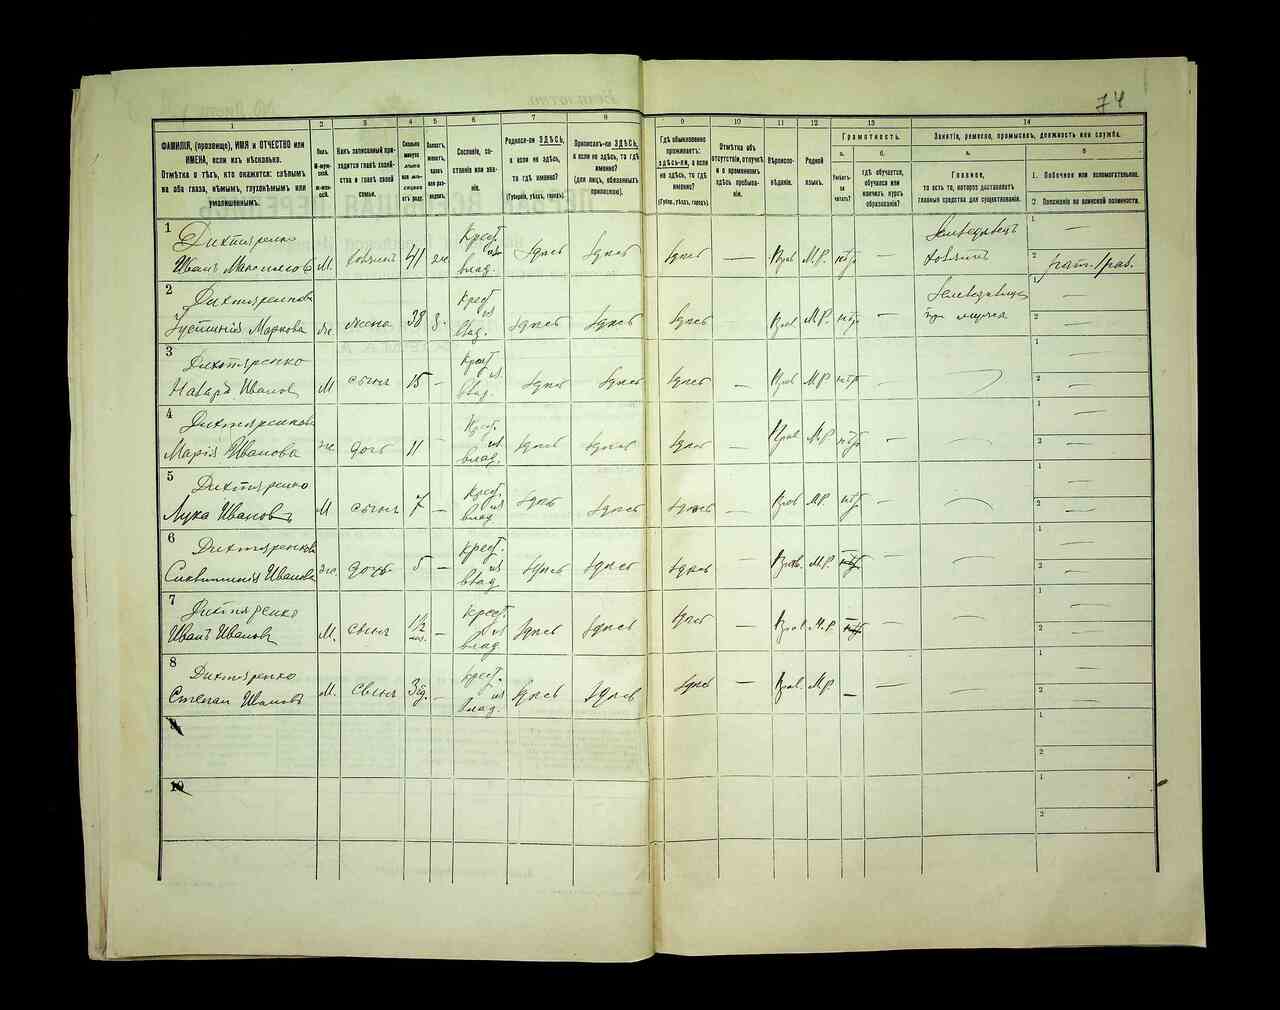 74
1
2
3
4
5
6
7
8
9
10
11
12
13
14
ФАМИЛІЯ, (прозвище), ИМЯ и ОТЧЕСТВО или
ИМЕНА, если ихъ нѣсколько.
Отмѣтка о тѣхъ, кто окажется: слѣпымъ
на оба глаза, нѣмымъ, глухонѣмымъ или
умалишеннымъ.
Полъ.
М-муж-
ской.
Ж-жен-
скій.
Какъ записанный при-
ходится главѣ хозяй-
ства и главѣ своей
семьи.
Сколько
минуло
лѣтъ
или мѣ-
сяцевъ
отъ роду.
Холостъ,
женатъ,
вдовъ
или раз-
веденъ.
Сословіе, со-
стояніе или зва-
ніе.
Родился-ли ЗДѢСЬ,
а если не здѣсь,
то гдѣ именно?
(Губернія, уѣздъ, городъ).
Приписанъ-ли ЗДѢСЬ,
а если не здѣсь, то гдѣ
именно?
(для лицъ, обязанныхъ
припискою).
Гдѣ обыкновенно
проживаетъ:
здѣсь-ли, а если
не здѣсь, то гдѣ
именно?
(Губерн., уѣздъ, городъ).
Отмѣтка объ
отсутствіи, отлучкѣ
и о временномъ
здѣсь пребыва-
ніи.
Вѣроиспо-
вѣданіе.
Родной
языкъ.
Грамотность.
а.
Умѣетъ-
ли
читать?
б.
гдѣ обучается,
обучался или
кончилъ курсъ
образованія?
Занятіе, ремесло, промыселъ, должность или служба.
а.
Главное,
то есть то, которое доставляетъ
главныя средства для существованія.
б
1. Побочное или вспомогательное.
2. Положеніе по воинской повинности.
1
Дихтяренко
Иванъ Максимовъ М. хозяинъ 41 же Крест. из влад. здѣсь здѣсь здѣсь — Прав М.Р. нѣтъ — Земледѣлецъ хозяинъ
1 —
2
2
Дихтяренкова
Маркова же жена 38 з. Крест. из влад. здѣсь здѣсь здѣсь — Прав. М.Р. нѣтъ — при мужѣ
1 —
2
3
Дихтяренко
Иванов М сынъ 15 — Крест. из влад. здѣсь здѣсь здѣсь — Прав М.Р. нѣтъ —
1 —
2 —
4
Дихтяренкова
Марія Иванова же дочь 11 — Крест. из влад. здѣсь здѣсь здѣсь — Прав М.Р. нѣтъ —
1 —
2 —
5
Дихтяренко
Лука Ивановъ М сынъ 7 — Крест. из влад здѣсь здѣсь здѣсь — Прав М.Р. нѣтъ —
1 —
2 —
6
Дихтяренкова
Иванова же. дочь 5 — Крест. из влад здѣсь здѣсь здѣсь — Прав. М.Р. нѣтъ —
1 —
2 —
7
Дихтяренко
Иванъ Ивановъ М. сынъ 1/2 — Крест. из влад. здѣсь здѣсь здѣсь — Прав. М.Р. нѣтъ —
1 —
2 —
8
Дихтяренко
Степан Ивановъ М. сынъ — Крест. из влад. здѣсь здѣсь здѣсь — Прав. М.Р. — —
1 —
2 —
9
1
2
10
1
2